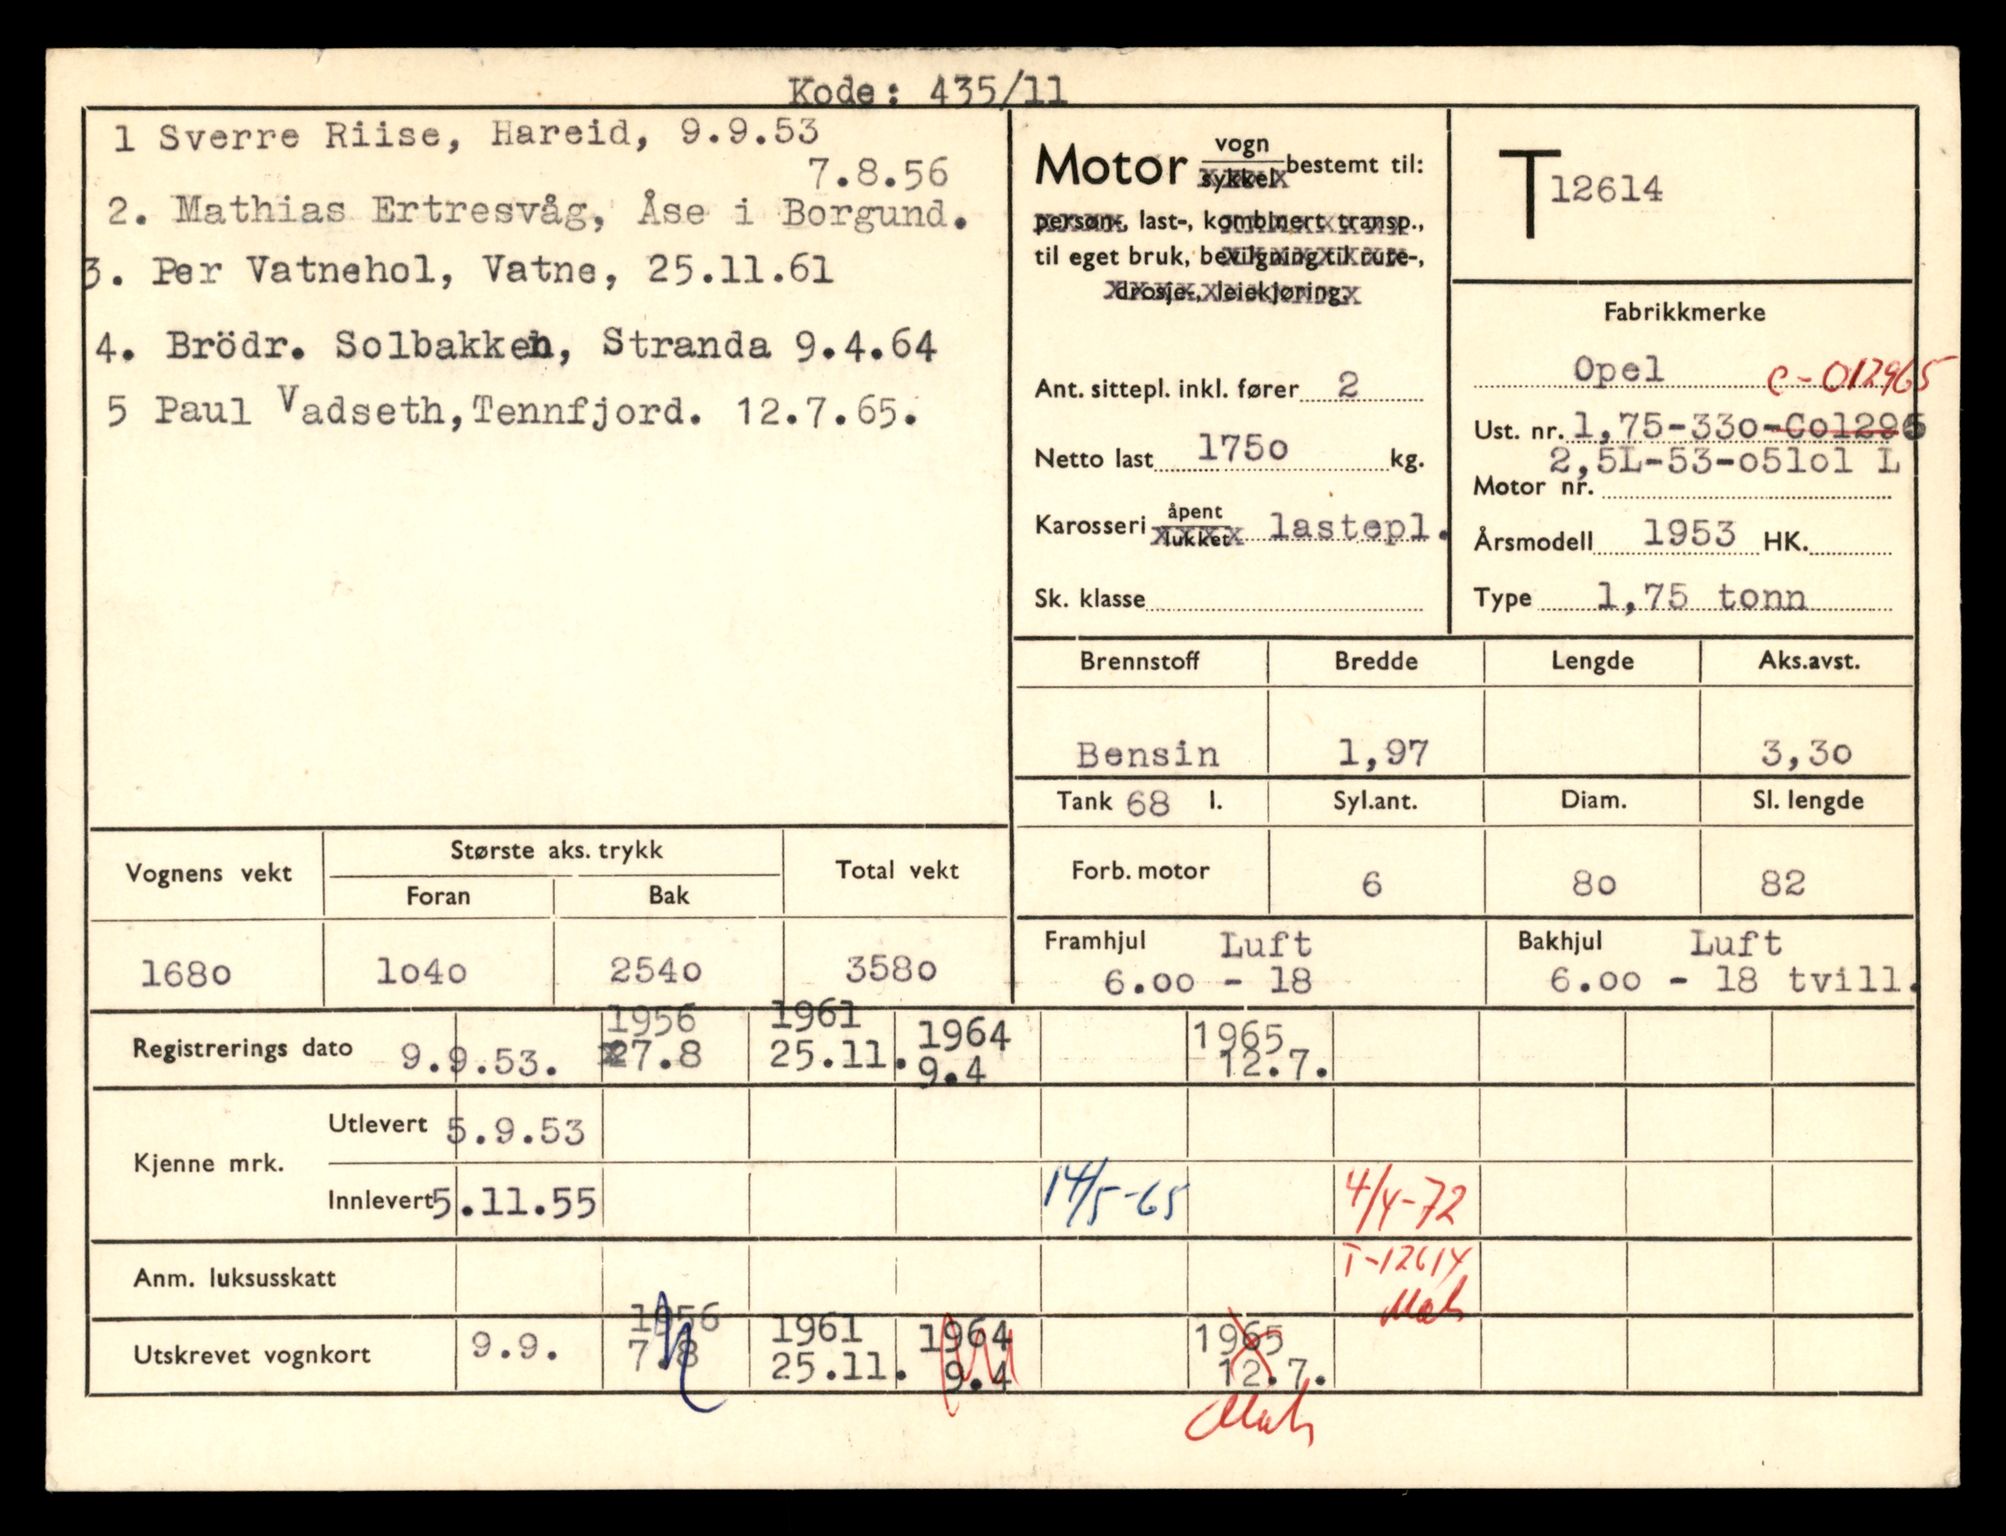 Kode: 435/11
1 Sverre Riise, Hareid, 9.9.53
7.8.56
2. Mathias Ertresvåg, Åse i Borgund.
3. Per Vatnehol, Vatne, 25.11.61
4. Brödr. Solbakken, Stranda 9.4.64
5 Paul Vadseth, Tennfjord. 12.7.65.
Motor vogn sykkel bestemt til:
person-, last-, kombinert transp.,
til eget bruk, bevilgning til rute-,
drosje-, leiekjøring.
Ant. sittepl. inkl. fører 2
Netto last 1750 kg.
Karosseri åpent lukket lastepl.
Sk. klasse
T 12614
Fabrikkmerke
Opel C-012965
Ust. nr. 1,75-330-Co1296
2,5L-53-o51o1 L
Motor nr.
Årsmodell 1953 HK.
Type 1,75 tonn
Brennstoff Bredde Lengde Aks.avst.
Bensin 1,97 3,30
Tank 68 l. Syl.ant. Diam. Sl. lengde
Forb. motor 6 80 82
Framhjul Luft Bakhjul Luft
6.00 - 18 6.00 - 18 tvill.
Vognens vekt Største aks. trykk Total vekt
Foran Bak
1680 1040 2540 3580
1956 1961 1964 1965
Registrerings dato 9.9.53. 27.8 25.11. 9.4 12.7.
Kjenne mrk.
Utlevert 5.9.53
Innlevert 5.11.55 14/5-65 4/4-72
Anm. luksusskatt T-12614
1956 1961 1964 1965
Utskrevet vognkort 9.9. 7.8 25.11. 9.4 12.7.